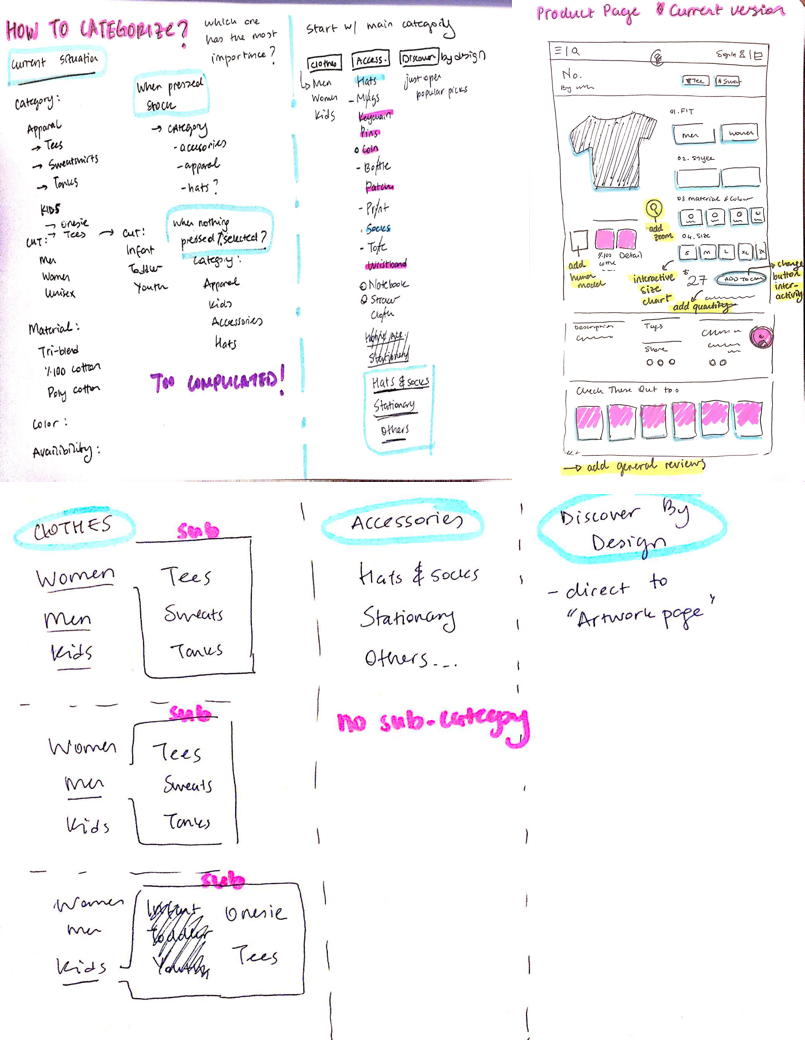 HOW TO CATEGORIZE?
which one
has the most
importance?
Current Situation
Category:
Apparal
→ Tees
→ Sweatshirts
→ Tanks
KIDS
→ Onesie
→ Tees
CUT:
Men
Women
Unisex
Material:
Tri-blend
%100 cotton
Poly cotton
Color:
Availibility:
When pressed
stock
→ CATEGORY
- acessories
- apparal
- hats?
→ CUT:
Infant
Toddler
Youth
When nothing
pressed/selected?
Category:
Apparal
Kids
Accessories
Hats
TOO COMPLICATED!
Start w/ main category
Clothes
Men
Women
Kids
Access.
Hats
- Mugs
Keychain
Pins
Coin
- Bottle
Patch
- Print
Socks
- Tote
Wristband
Notebook
Straw
Stationary
Hats & socks
Stationary
Others
Discover by design
just open
popular picks
Product Page Current version
Sign
No.
By
Tee
01. FIT
men
women
02. Style
03 Material & Colour
04. Size
S M L XL
$27
ADD TO CART
add zoom
add
human
model
%100
Detail
interactive
size
chart
add quantity
change
button
inter-
activity
Description
Tags
Share
Check These Out too
→ add general reviews
CLOTHES
sub
Women
Men
Kids
Tees
Sweats
Tanks
sub
Women
Men
Kids
Tees
Sweats
Tanks
sub
Women
Men
Kids
Infant
Toddler
Youth
Onesie
Tees
Accessories
Hats & socks
Stationary
Others...
no sub-category
Discover By
Design
- direct to
"Artwork page"